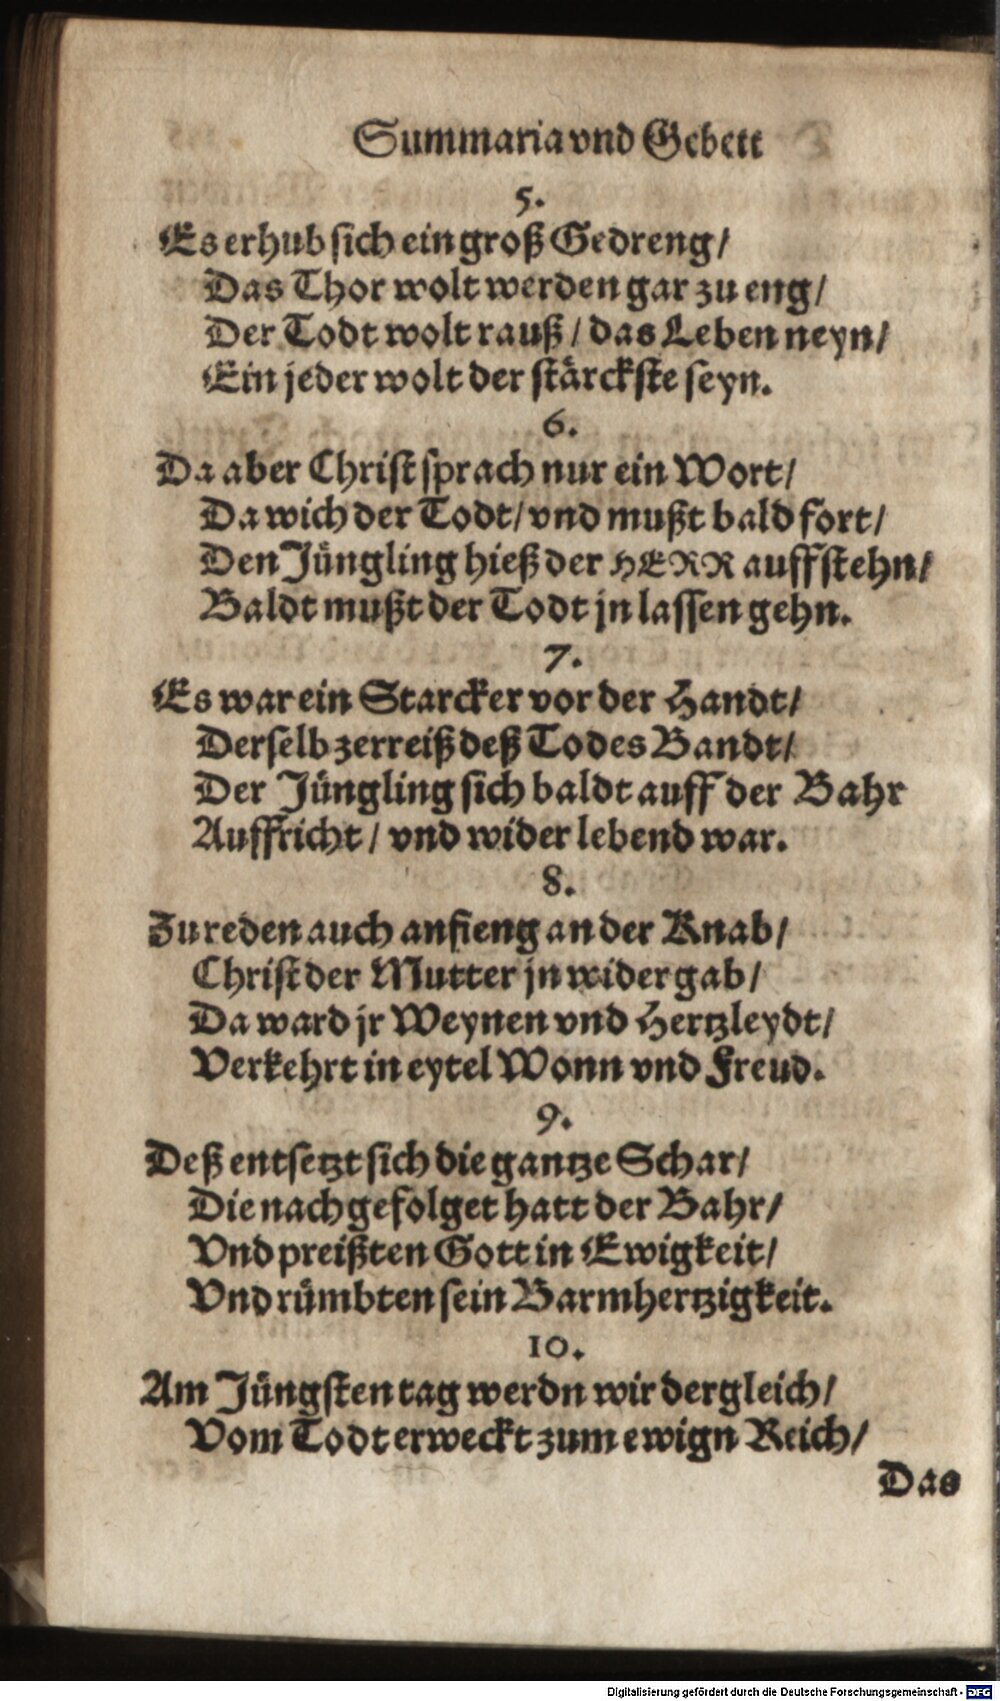 Summaria vnd Gebett
5.
Es erhub sich ein groß Gedreng/
Das Thor wolt werden gar zu eng/
Der Todt wolt rauß / das Leben neyn/
Ein jeder wolt der stärckste seyn.
6.
Da aber Christ sprach nur ein Wort/
Da wich der Todt/ vnd mußt bald fort/
Den Jüngling hieß der HERR auffstehn/
Baldt mußt der Todt jn lassen gehn.
7.
Es war ein Starcker vor der Handt/
Derselb zerreiß deß Todes Bandt/
Der Jüngling sich baldt auff der Bahr
Auffricht / vnd wider lebend war.
8.
Zu reden auch anfieng an der Knab/
Christ der Mutter jn widergab/
Da ward jr Weynen vnd Hertzleydt/
Verkehrt in eytel Wonn vnd Freud.
9.
Deß entsetzt sich die gantze Schar/
Die nachgefolget hatt der Bahr/
Vnd preißten Gott in Ewigkeit/
Vnd rümbten sein Barmhertzigkeit.
10.
Am Jüngsten tag werdn wir dergleich/
Vom Todt erweckt zum ewign Reich/
Das
Digitalisierung gefördert durch die Deutsche Forschungsgemeinschaft - DFG